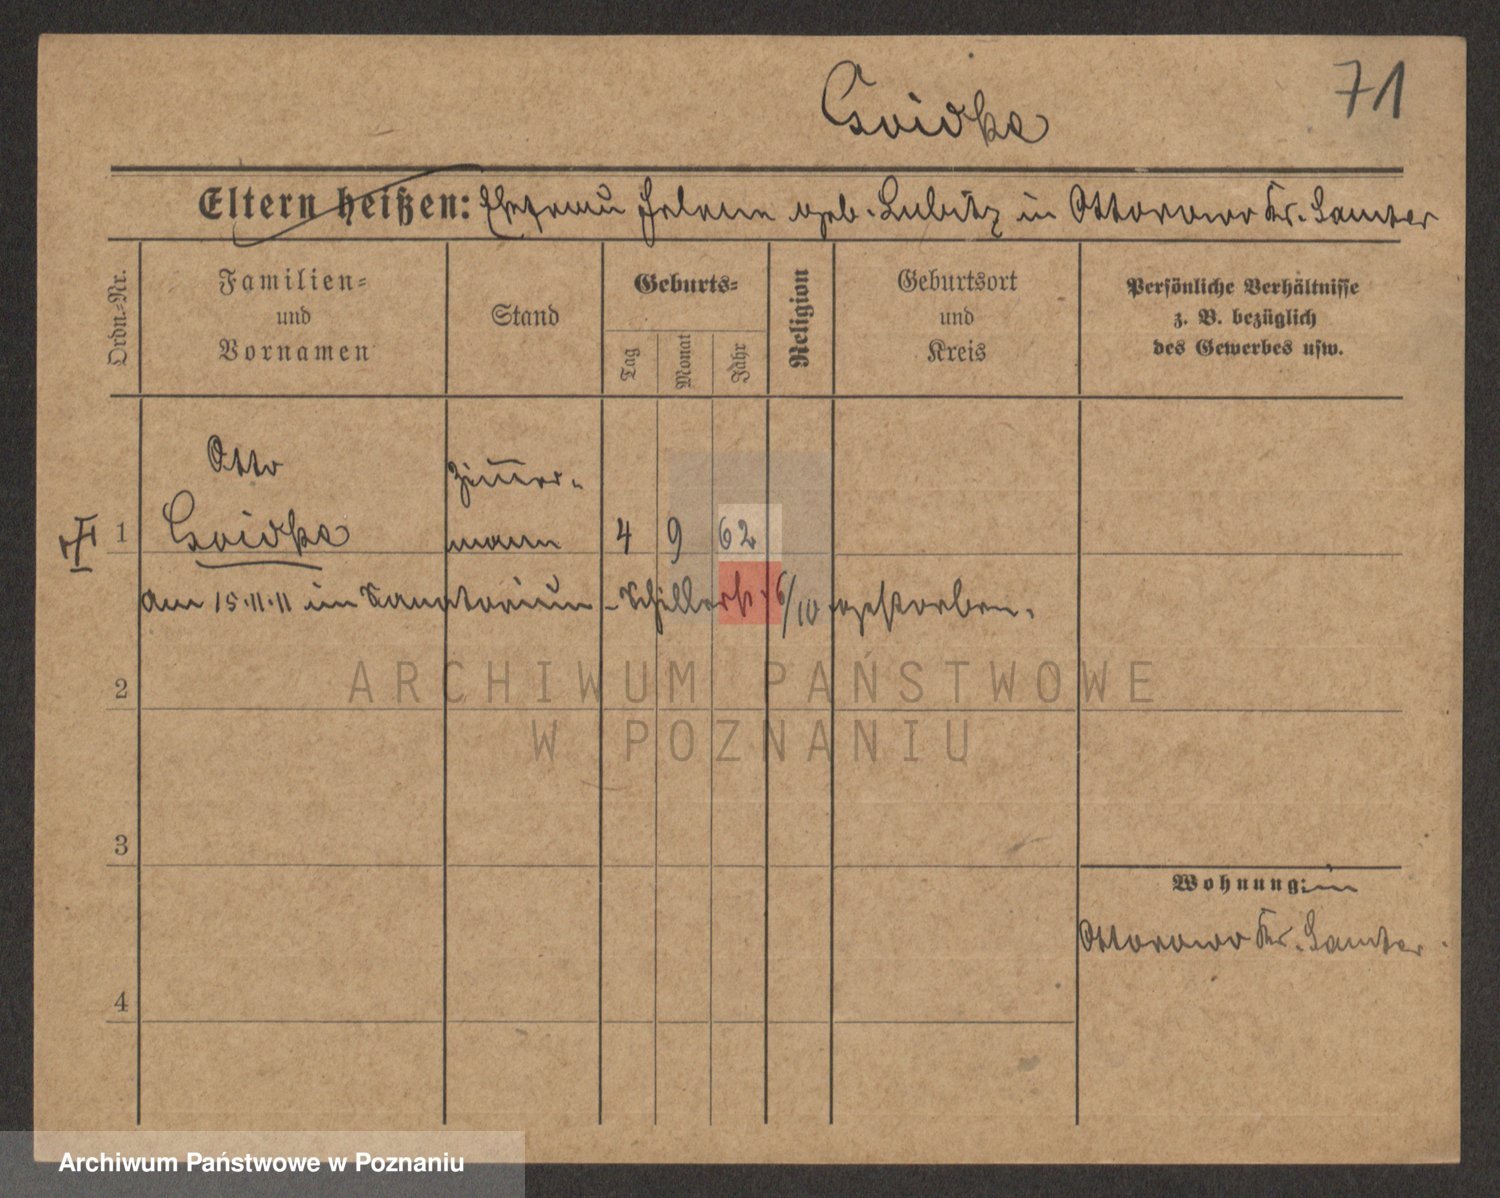 71
Czidka
Eltern heißen: Ehefrau Helene geb. Lubitz in Ottorowo Kr. Samter
Ordn.-Nr.
Familien-
und
Vornamen
Stand
Geburts-
Tag
Monat
Jahr
Religion
Geburtsort
und
Kreis
Persönliche Verhältnisse
z. B. bezüglich
des Gewerbes usw.
Otto
Zimmer-
1 mann 4 9 62
am 15.11.11 im Sanatorium - Schillerstr. 6/10 gestorben.
ARCHIWUM PAŃSTWOWE
2
W POZNANIU
3
Wohnung: in
Ottorowo Kr. Samter.
4
Archiwum Państwowe w Poznaniu